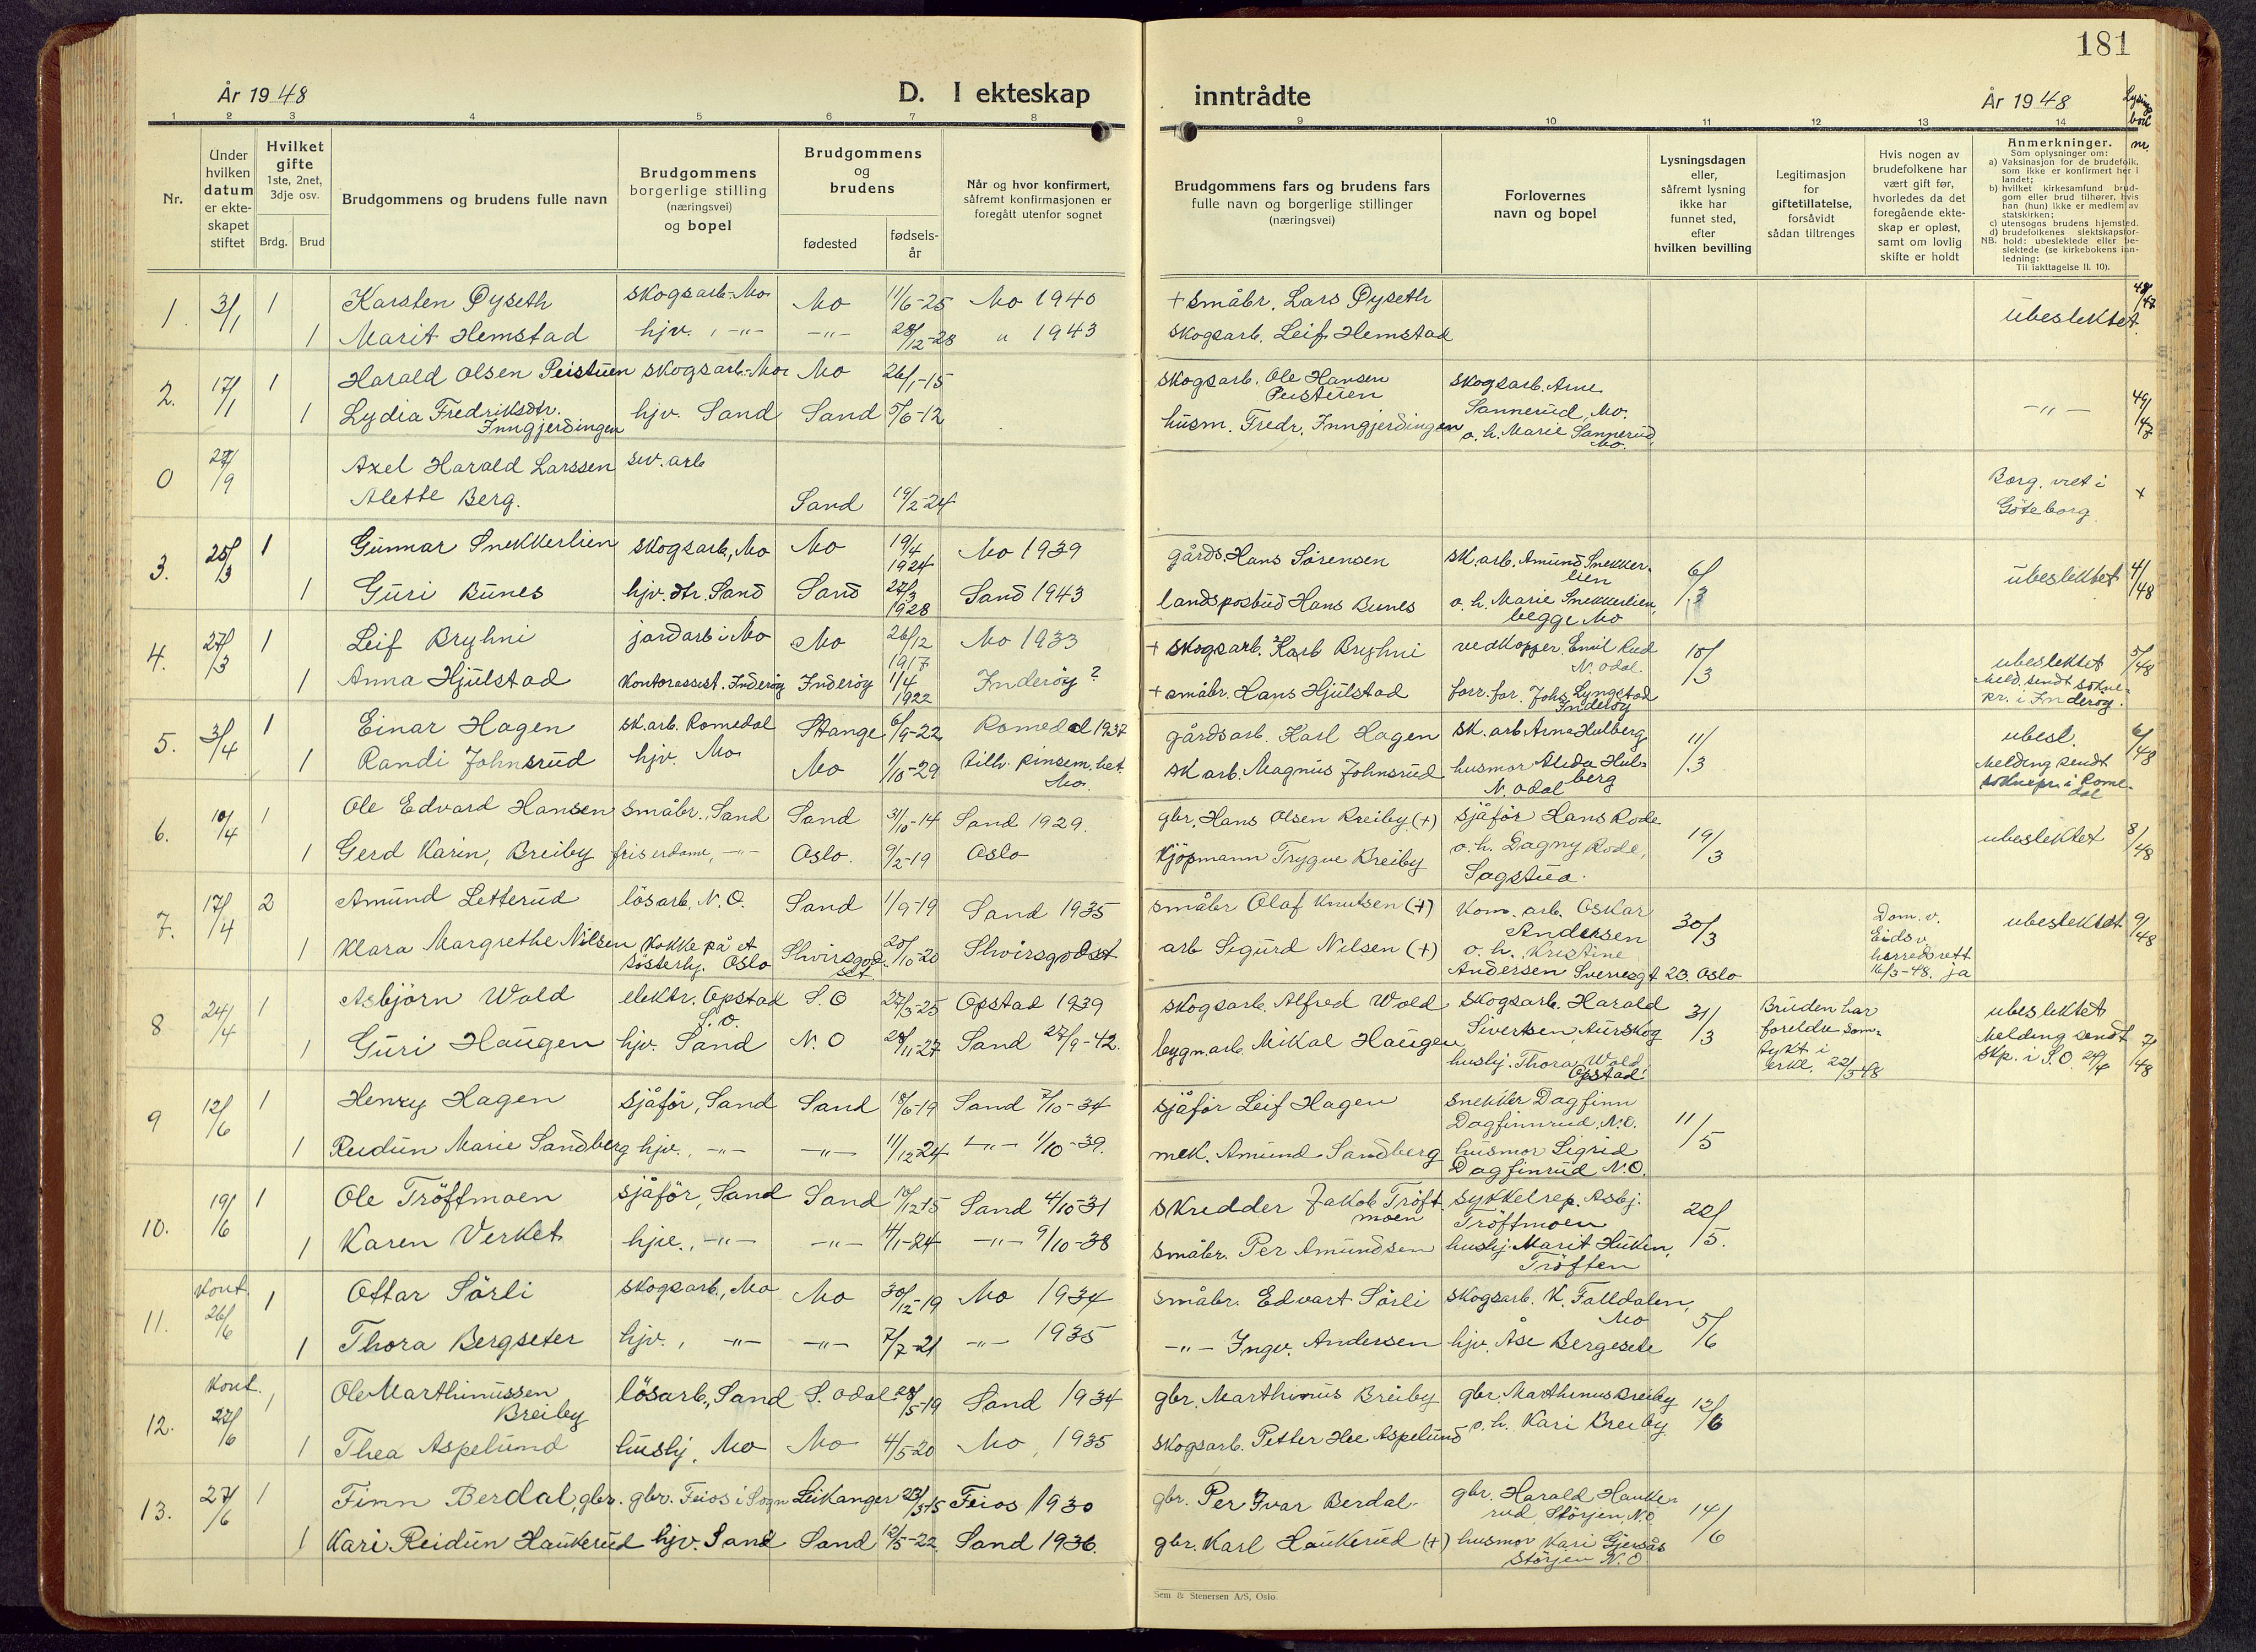 181
År 1948
D. I ekteskap
inntrådte
År 1948
Lysings
bok
nr.
1 2 3 4 5 6 7 8 9 10 11 12 13 14
Nr.
Under
hvilken
datum
er ekte-
skapet
stiftet
Hvilket
gifte
1ste, 2net,
3dje osv.
Brdg. Brud
Brudgommens og brudens fulle navn
Brudgommens
borgerlige stilling
(næringsvei)
og bopel
Brudgommens
og
brudens
fødested
fødsels-
år
Når og hvor konfirmert,
såfremt konfirmasjonen er
foregått utenfor sognet
Brudgommens fars og brudens fars
fulle navn og borgerlige stillinger
(næringsvei)
Forlovernes
navn og bopel
Lysningsdagen
eller,
såfremt lysning
ikke har
funnet sted,
efter
hvilken bevilling
Legitimasjon
for
giftetillatelse,
forsåvidt
sådan tiltrenges
Hvis nogen av
brudefolkene har
vært gift før,
hvorledes da det
foregående ekte-
skap er opløst,
samt om lovlig
skifte er holdt
Anmerkninger.
Som oplysninger om:
a) Vaksinasjon for de brudefolk,
som ikke er konfirmert her i
landet;
b) hvilket kirkesamfund brud-
gom eller brud tilhører, hvis
han (hun) ikke er medlem av
statskirken;
c) utensogns brudens hjemsted.
d) brudefolkenes slektskapsfor-
NB. hold: ubeslektede eller be-
slektede (se kirkebokens inn-
ledning:
Til iakttagelse II. 10).
1. 3/1 1 Karsten Øyseth skogsarb. Mo Mo 11/6-25 Mo 1940 + småbr. Lars Øyseth ubeslektet. 48/47
1 Marit Hemstad hjv., -"- -"- 28/12-28 " 1943 skogsarb. Leif Hemstad
2. 17/1 1 Harald Olsen Peistuen skogsarb. Mo Mo 26/1-15 skogsarb. Ole Hansen skogsarb. Arne
Peistuen Sannerud, Mo. -"- 49/47
1 Lydia Fredriksdtr. hjv. Sand Sand 5/6-12 husm. Fredr. Inngjerdingen
Inngjerdingen o. h. Marie Sannerud
Mo.
0 27/9 Axel Harald Larssen sv. arb Borg. viet i
Alette Berg. Sand 19/2-24 Göteborg +
3. 25/3 1 Gunnar Snekkerlien skogsarb, Mo Mo 19/4 1924 Mo 1939 gårdb. Hans Sørensen sk. arb. Amund Snekker-
lien 6/3 ubeslektet 4/48
1 Guri Bunes hjv. dtr. Sand Sand 27/3 1928 Sand 1943 landspostbud Hans Bunes o. h. Marie Snekkerlien,
begge Mo
4. 27/3 1 Leif Bryhni jordarb i Mo Mo 26/12 1917 Mo 1933 + skogsarb. Karl Bryhni vedkopper. Emil Rud
N. Odal. 10/3 ubeslektet 5/48
1 Anna Hjulstad Kontorassist. Inderøy Inderøy 1/4 1922 Inderøy ? + småbr. Hans Hjulstad forr. for. Johs Lyngstad
Inderøy meld. sendt sokne-
pr. i Inderøy.
5. 3/4 1 Einar Hagen sk. arb. Romedal Stange 6/9-22 Romedal 1937 gårdsarb. Karl Hagen sk. arb Arne Hulberg 11/3 ubesl. 6/48
1 Randi Johnsrud hjv. Mo Mo 1/10-29 tilh. pinsem. het. sk arb. Magnus Johnsrud husmor Alida Hul-
Mo. berg
N. Odal Melding sendt
soknepr. i Rome-
dal
6. 10/4 1 Ole Edvard Hansen småbr., Sand Sand 31/10-14 Sand 1929. gbr. Hans Olsen Breiby (+) sjåfør Hans Rode 19/3 ubeslektet 8/48
1 Gerd Karin, Breiby friserdame, -"- Oslo. 9/2-19 Oslo Kjøpmann Trygve Breiby o. h. Dagny Rode,
Sagstua.
7. 17/4 2 Amund Letterud løsarb. N. O. Sand 1/9-19 Sand 1935 småbr Olaf Knutsen (+) Kom. arb. Oskar
Andersen 30/3 Dom. v.
Eidsv.
herredsrett
16/3-48. ja ubeslektet 9/48
1 Klara Margrethe Nilsen Kokke på et
søsterhj. Oslo 20/10-20 arb Sigurd Nilsen (+) o. h. Kristine
Andersen Sverresgt 23. Oslo
8 24/4 1 Asbjørn Wold elektr. Opstad
S. O. S. O 27/3-25 Opstad 1939 skogsarb. Alfred Wold skogsarb. Harald
Sivertsen, Aurskog 31/3 Bruden har
foreldre sam-
tykt i
erkl. 22/3 48 ubeslektet
Melding sendt
skp. i S. O 24/4 7/48
1 Guri Haugen hjv. Sand N. O 28/11-27 Sand 27/9-42. bygn.arb. Mikal Haugen
hushj. Thora Wold
Opstad
9 12/6 1 Henry Hagen sjåfør, Sand Sand 18/6-19 Sand 7/10-34 sjåfør Leif Hagen snekker Dagfinn
Dagfinnrud, N. O. 11/5
1 Reidun Marie Sandberg hjv., -"- -"- 11/12 24 -"- 1/10-39. mek. Amund Sandberg husmor Sigrid
Dagfinrud N. O.
10. 19/6 1 Ole Trøftmoen sjåfør, Sand Sand 10/12 15 Sand 4/10-31 skredder Jakob Trøft
moen sykkelrep. Asbj.
Trøftmoen 20/5.
1 Karen Verket hjv., -"- -"- 4/1-24 -"- 9/10-38 småbr. Per Amundsen hushj. Marit Huken,
Trøften
11. Kont. 26/6 1 Ottar Sørli skogsarb., Mo Mo 30/12-19 Mo 1934 småbr. Edvart Sørli skogsarb. K. Falldalen,
Mo 5/6
1 Thora Bergseter hjv., -"- -"- 7/7-21 -"- 1935 -"- Ingv. Andersen hjv. Åse Bergesete
12. Kont. 27/6 1 Ole Marthinussen
Breiby løsarb., Sand S. Odal 28/5-19 Sand 1934 gbr. Marthinus Breiby gbr. Marthinus Breiby 12/6
1 Thea Aspelund hushj, Mo Mo 4/5-20 Mo, 1935 skogsarb. Petter Aspelund o. h. Kari Breiby
13. 27/6 1 Finn Berdal, gbr. gbr. Feios i Sogn Leikanger 23/3 15 Feios 1930 gbr. Per Ivar Berdal gbr. Harald Hauke-
rud, Størjen, N. O 14/6
1 Kari Reidun Haukerud hjv. Sand Sand 12/5-22 Sand 1936. gbr. Karl Haukerud (+) husmor Kari Gjersås
Størjen N. O
Sem & Stenersen A/S, Oslo.